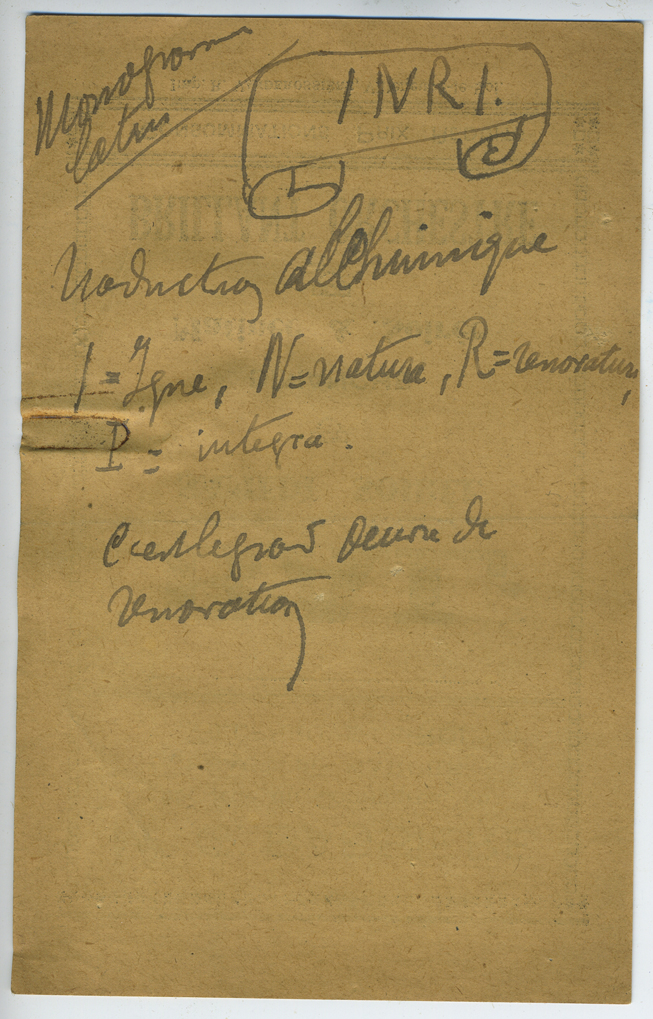 Monogramme
latin
INRI.
traduction alchimique
I = Igne, N = natura, R = renovatur,
I = integra.
C'est le grand oeuvre de
renovation